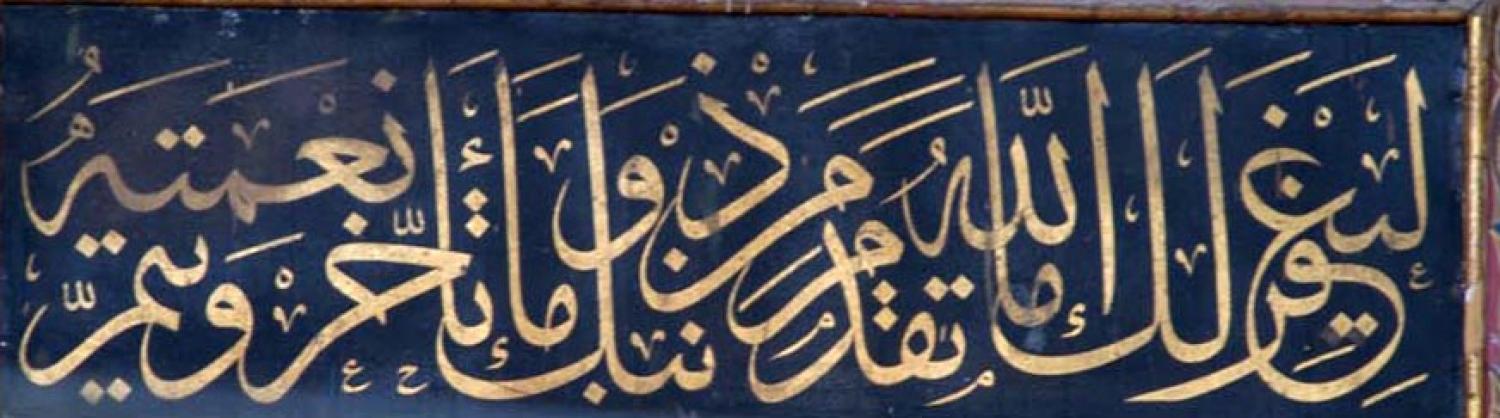 ليغفر لك الله ما تقدم من ذنبك وما تأخر ويتم نعمته